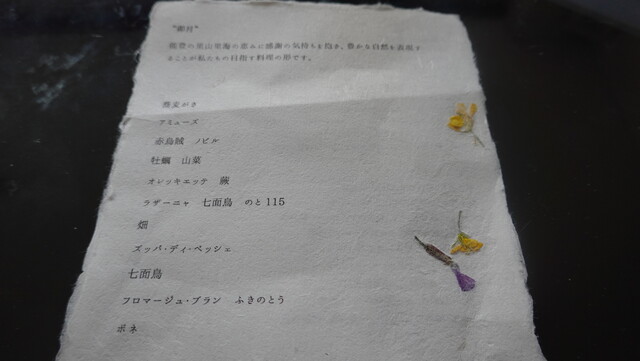 "卯月"
能登の里山里海の恵みに感謝の気持ちを抱き、豊かな自然を表現す
ることが私たちの目指す料理の形です。
蕎麦がき
アミューズ
赤烏賊 ノビル
牡蠣 山菜
オレッキエッテ 蕨
ラザーニャ 七面鳥 のと115
畑
ズッパ・ディ・ペッシェ
七面鳥
フロマージュ・ブラン ふきのとう
ボネ